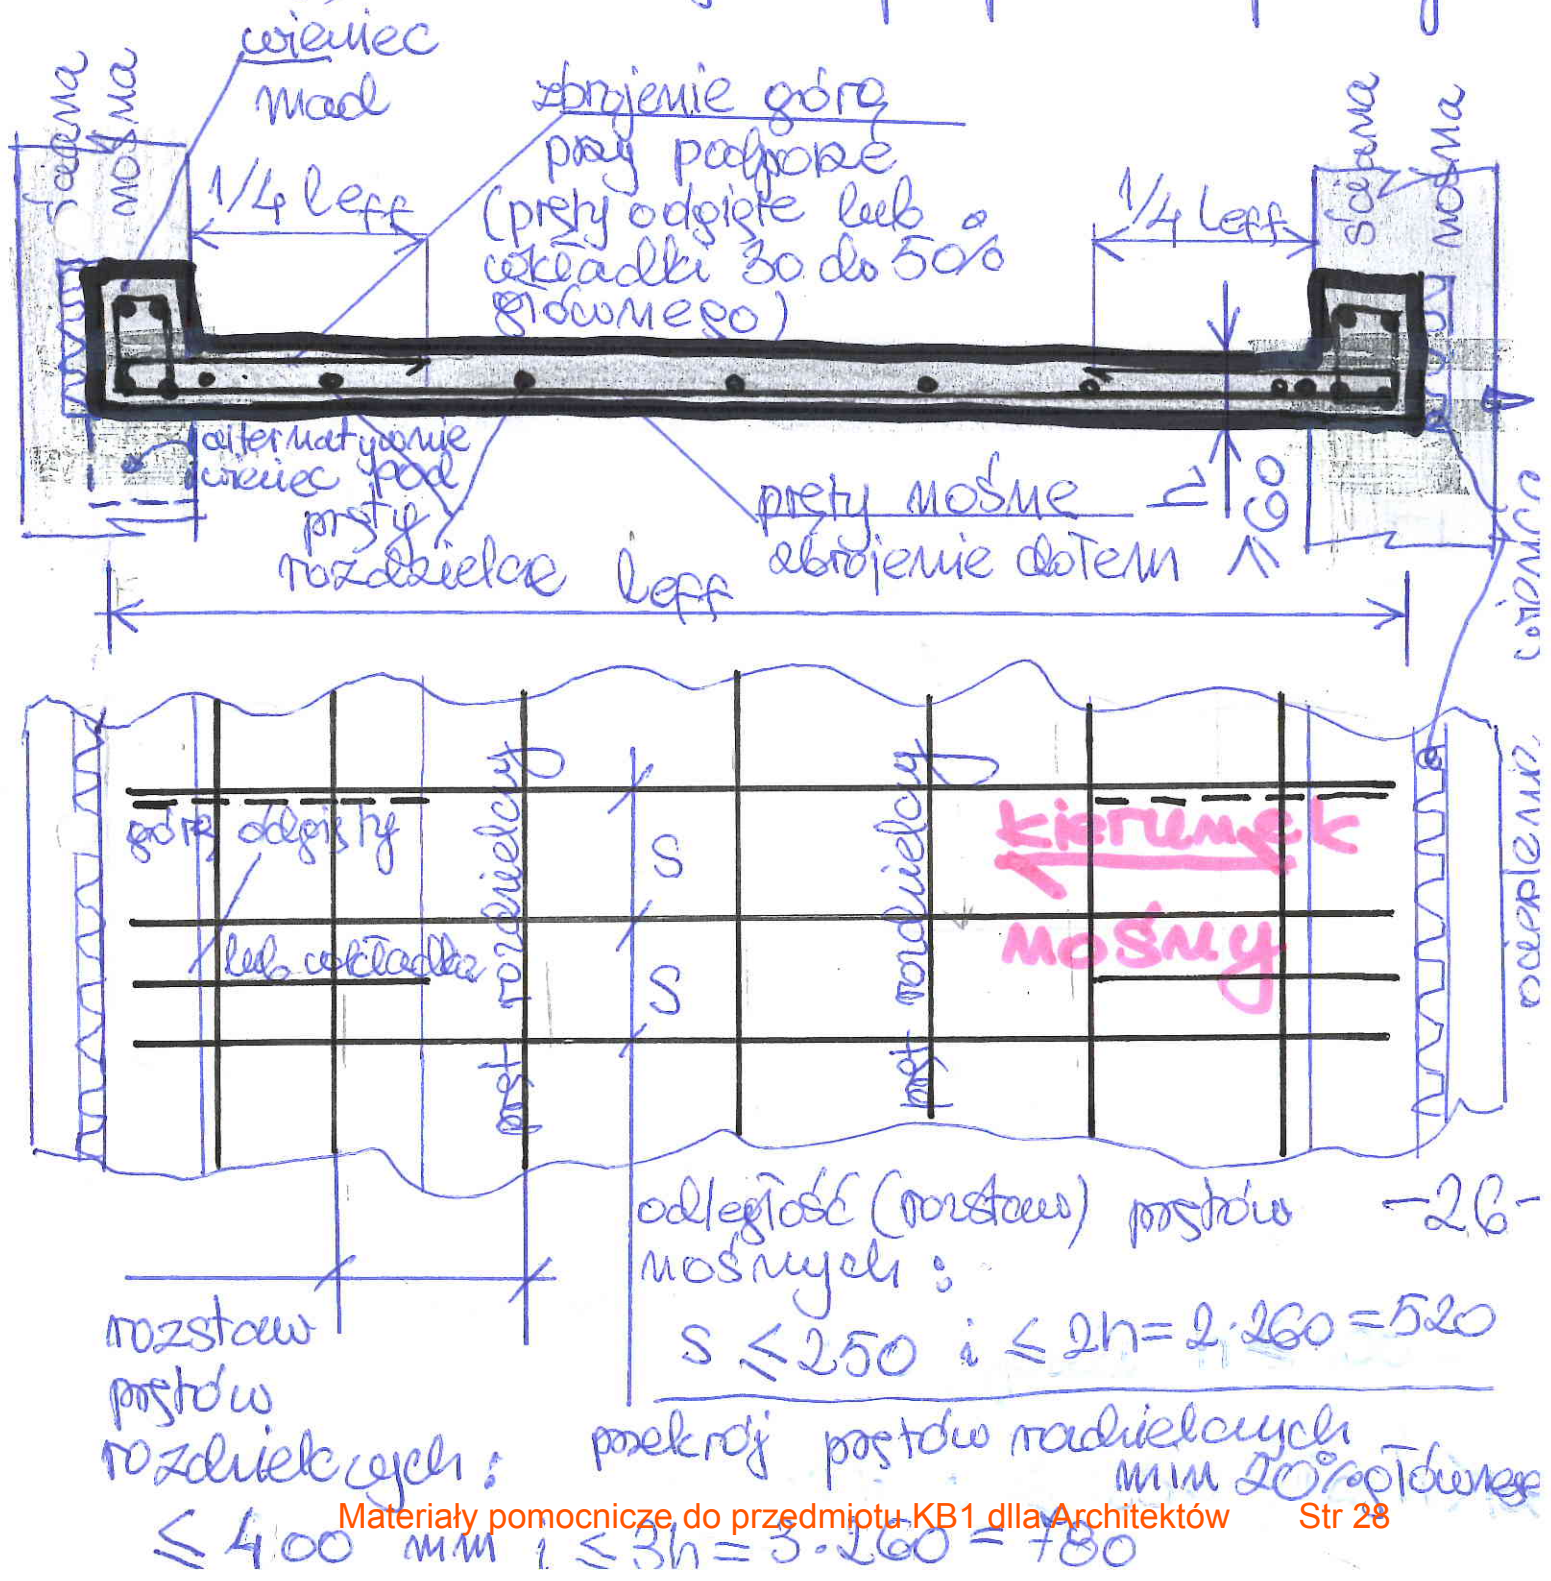 wieniec
nad
ściana
nośna
zbrojenie górą
przy podporze
(pręty odgięte lub
wkładki 30 do 50%
głównego)
1/4 leff
1/4 leff
ściana
nośna
alternatywnie
wieniec pod
pręty
rozdzielcze
pręty nośne
zbrojenie dołem
h
≥ 60
leff
wieńca
ocieplenie
górą odgięty
lub wkładka
pręt rozdzielczy
S
S
pręt rozdzielczy
kierunek
nośny
odległość (rozstaw) prętów
nośnych:
-26-
S ≤ 250 i ≤ 2h = 2·260 = 520
rozstaw
prętów
rozdzielczych:
≤ 400 mm i ≤ 3h = 3·260 = 780
przekrój prętów rozdzielczych
min 20% głównego
Materiały pomocnicze do przedmiotu KB1 dlla Architektów Str 28